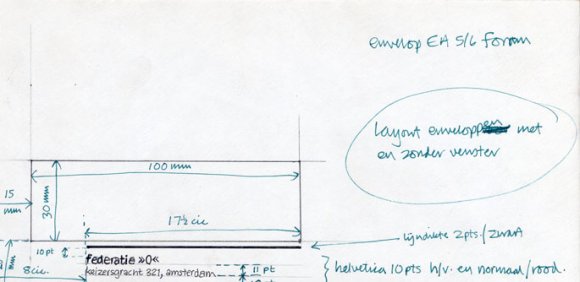 envelop EA 5/6 forum
Layout enveloppen met
en zonder venster
100 mm
15
mm
30 mm
17½ cic
lijndikte 2pts./zwart
10pt
federatie »0«
keizersgracht 321, amsterdam
11 pt
8 cic.
mm
helvetica 10 pts h/v. en normaal/rood.